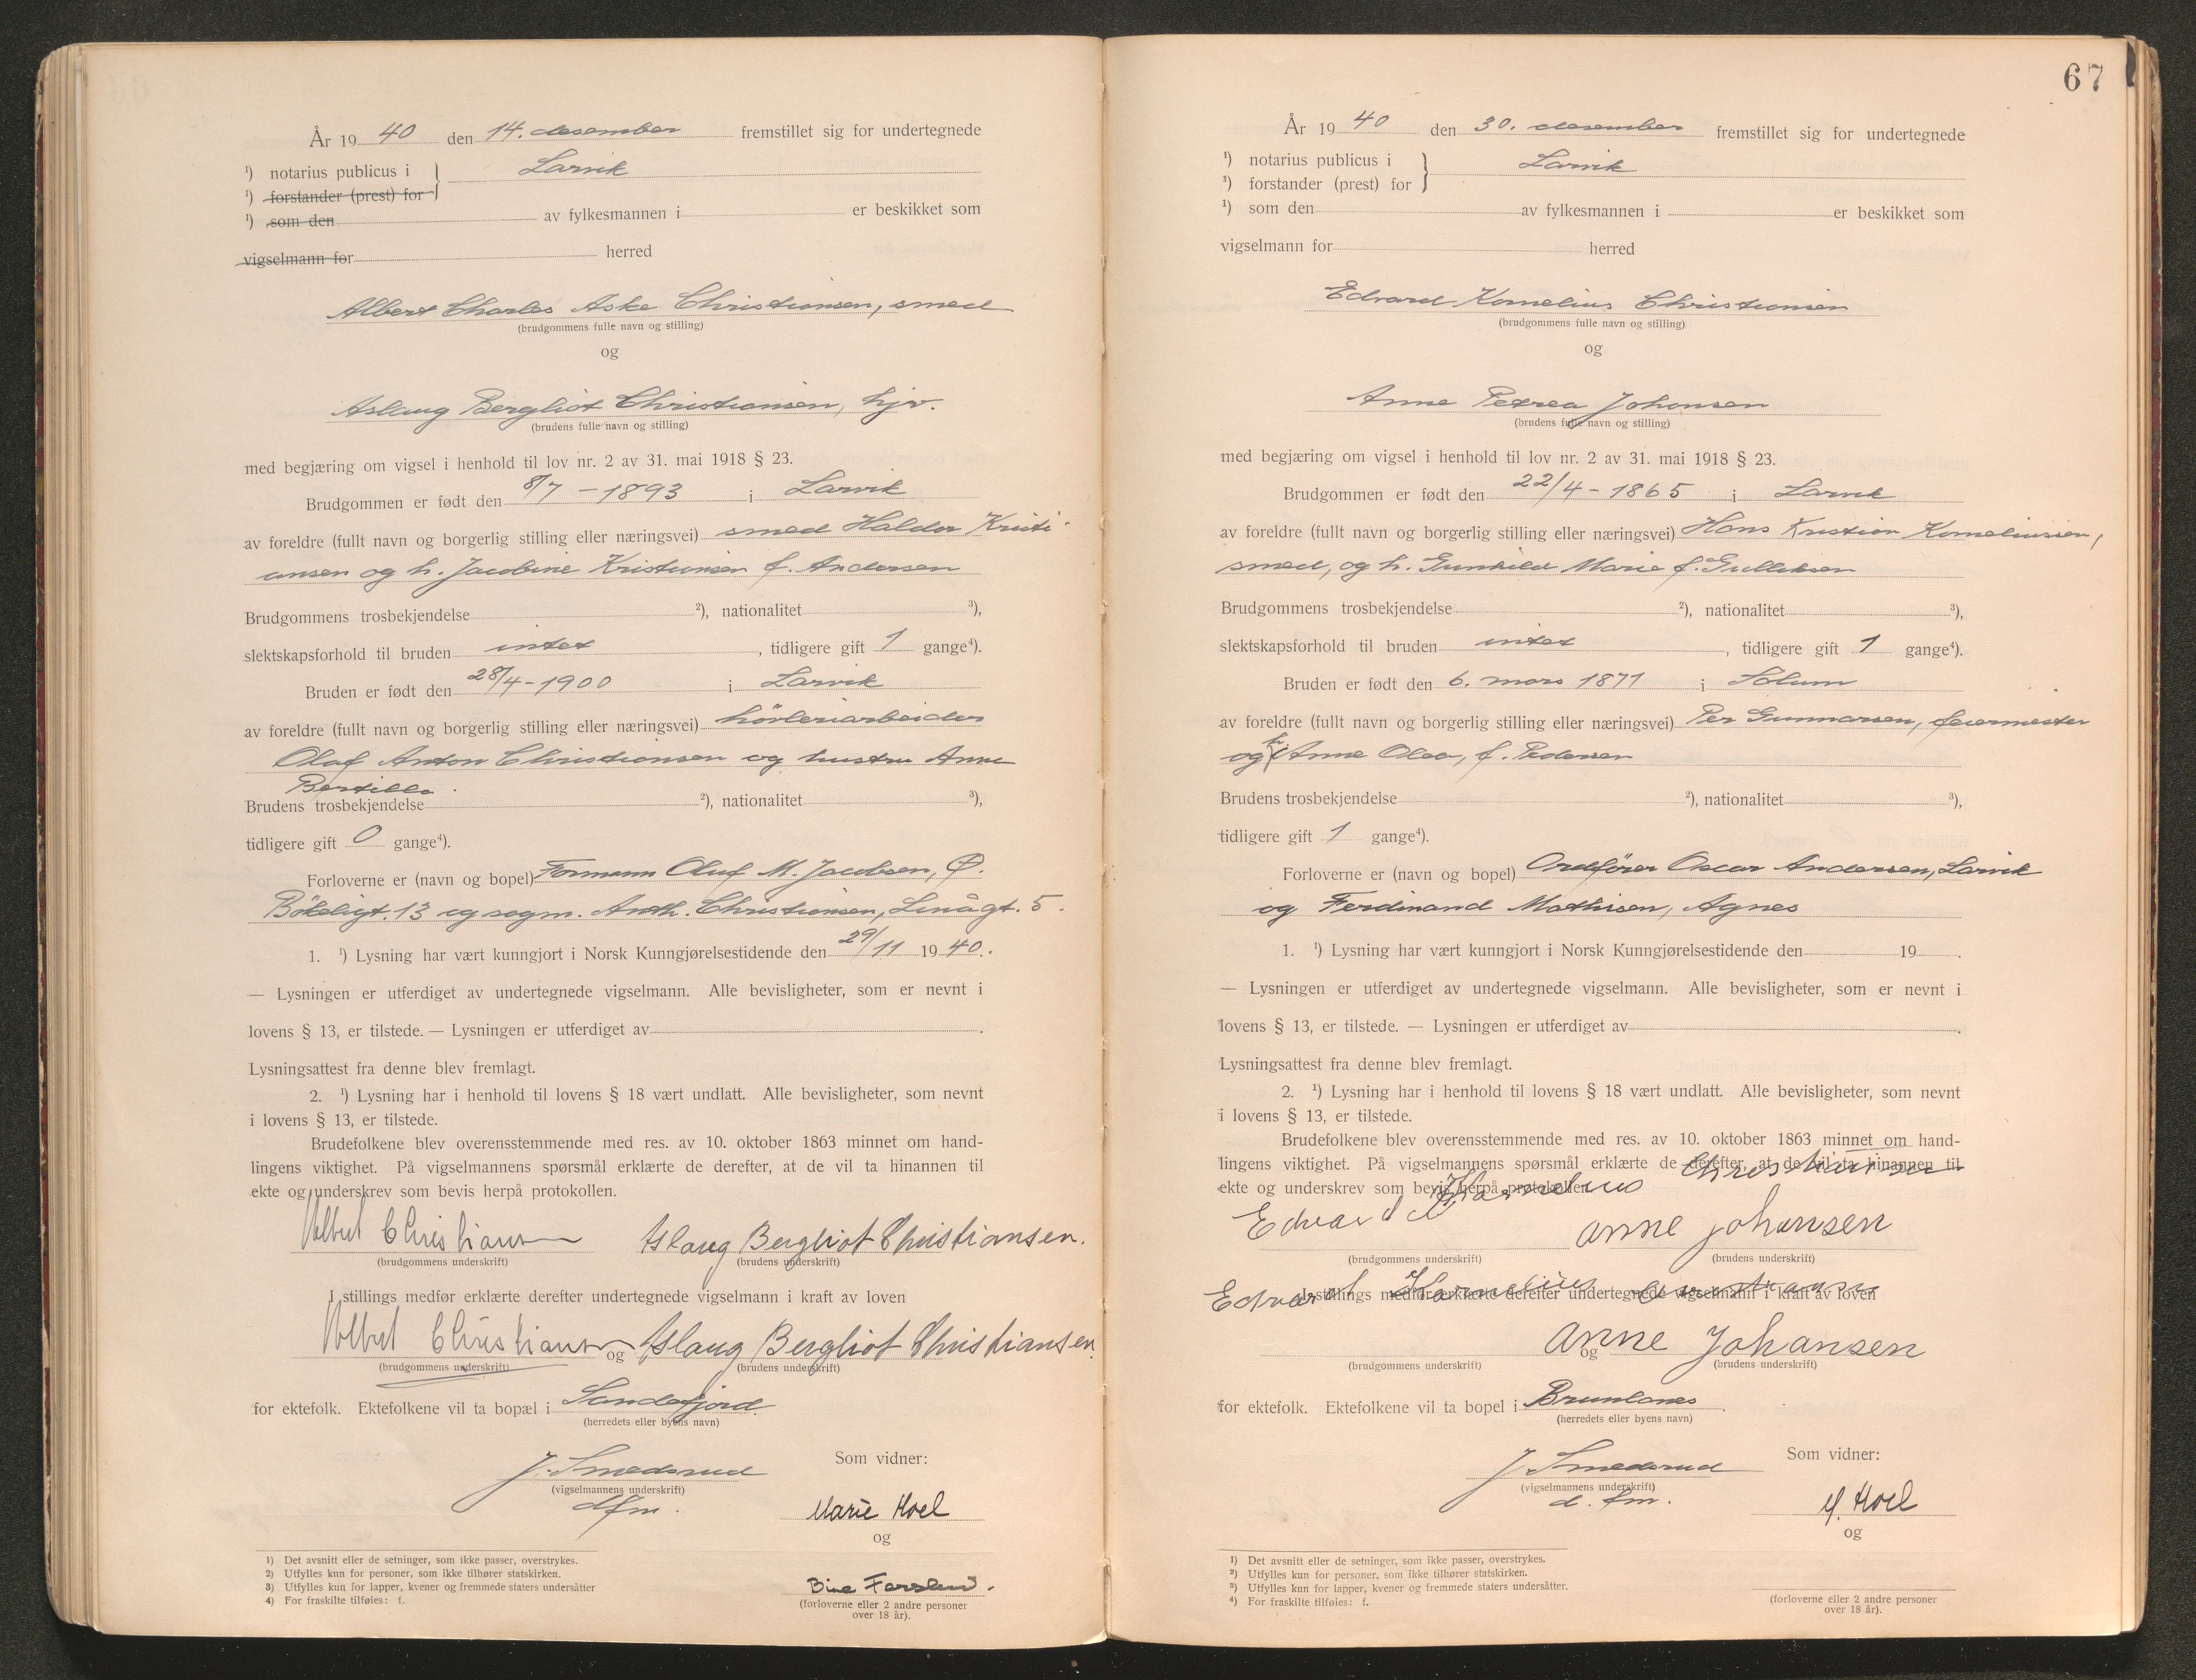 År 19 40 den 14. desember fremstillet sig for undertegnede
¹) notarius publicus i } Larvik
¹) forstander (prest) for
¹) som den av fylkesmannen i er beskikket som
vigselmann for herred
Albert Charles Aske Christiansen, smed
(brudgommens fulle navn og stilling)
og
Aslaug Bergliot Christiansen, hjv.
(brudens fulle navn og stilling)
med begjæring om vigsel i henhold til lov nr. 2 av 31. mai 1918 § 23.
Brudgommen er født den 8/7 - 1893 i Larvik
av foreldre (fullt navn og borgerlig stilling eller næringsvei) smed Haldor Kristi-
ansen og h. Jacobine Kristiansen f. Andersen
Brudgommens trosbekjendelse ²), nationalitet ³),
slektskapsforhold til bruden intet, tidligere gift 1 gange⁴).
Bruden er født den 28/4-1900 i Larvik
av foreldre (fullt navn og borgerlig stilling eller næringsvei) høvleriarbeider
Olaf Anton Christiansen og hustru Anne
Bertilla.
Brudens trosbekjendelse ²), nationalitet ³),
tidligere gift 0 gange⁴).
Forloverne er (navn og bopel) Formann Oluf M. Jacobsen, Ø.
Bøkeligt. 13 og sagm. Anth. Christiansen, Linågt. 5.
1. ¹) Lysning har vært kunngjort i Norsk Kunngjørelsestidende den 29/11 19 40.
— Lysningen er utferdiget av undertegnede vigselmann. Alle bevisligheter, som er nevnt i
lovens § 13, er tilstede. — Lysningen er utferdiget av .
Lysningsattest fra denne blev fremlagt.
2. ¹) Lysning har i henhold til lovens § 18 vært undlatt. Alle bevisligheter, som nevnt
i lovens § 13, er tilstede.
Brudefolkene blev overensstemmende med res. av 10. oktober 1863 minnet om hand-
lingens viktighet. På vigselmannens spørsmål erklærte de derefter, at de vil ta hinannen til
ekte og underskrev som bevis herpå protokollen.
Albert Christiansen Aslaug Bergliot Christiansen.
(brudgommens underskrift) (brudens underskrift)
I stillings medfør erklærte derefter undertegnede vigselmann i kraft av loven
Albert Christiansen og Aslaug Bergliot Christiansen.
(brudgommens underskrift) (brudens underskrift)
for ektefolk. Ektefolkene vil ta bopæl i Sandefjord.
(herredets eller byens navn)
J. Smedsrud
(vigselmannens underskrift)
dfm.
Som vidner:
Marie Hoel
og
Bine Farslund.
(forloverne eller 2 andre personer
over 18 år).
1) Det avsnitt eller de setninger, som ikke passer, overstrykes.
2) Utfylles kun for personer, som ikke tilhører statskirken.
3) Utfylles kun for lapper, kvener og fremmede staters undersåtter
4) For fraskilte tilføies: f.
67
År 19 40 den 30. desember fremstillet sig for undertegnede
¹) notarius publicus i } Larvik
¹) forstander (prest) for
¹) som den av fylkesmannen i er beskikket som
vigselmann for herred
Edvard Kornelius Christiansen
(brudgommens fulle navn og stilling)
og
Anne Petrea Johansen
(brudens fulle navn og stilling)
med begjæring om vigsel i henhold til lov nr. 2 av 31. mai 1918 § 23.
Brudgommen er født den 22/4 - 1865 i Larvik
av foreldre (fullt navn og borgerlig stilling eller næringsvei) Hans Kristian Korneliussen,
smed, og h. Gunhild Marie f. Gulliksen
Brudgommens trosbekjendelse ²), nationalitet ³),
slektskapsforhold til bruden intet, tidligere gift 1 gange⁴).
Bruden er født den 6. mars 1871 i Solum
av foreldre (fullt navn og borgerlig stilling eller næringsvei) Per Gunnarsen, feiermester
og h. Anne Olea, f. Pedersen
Brudens trosbekjendelse ²), nationalitet ³),
tidligere gift 1 gange⁴).
Forloverne er (navn og bopel) Ordfører Oscar Andersen, Larvik
og Ferdinand Mathisen, Agnes
1. ¹) Lysning har vært kunngjort i Norsk Kunngjørelsestidende den 19 .
— Lysningen er utferdiget av undertegnede vigselmann. Alle bevisligheter, som er nevnt i
lovens § 13, er tilstede. — Lysningen er utferdiget av .
Lysningsattest fra denne blev fremlagt.
2. ¹) Lysning har i henhold til lovens § 18 vært undlatt. Alle bevisligheter, som nevnt
i lovens § 13, er tilstede.
Brudefolkene blev overensstemmende med res. av 10. oktober 1863 minnet om hand-
lingens viktighet. På vigselmannens spørsmål erklærte de derefter, at de vil ta hinannen til
ekte og underskrev som bevis herpå protokollen.
Edvard Kornelius Christiansen Anne Johansen
(brudgommens underskrift) (brudens underskrift)
I stillings medfør erklærte derefter undertegnede vigselmann i kraft av loven
Edvard Kornelius Christiansen og Anne Johansen
(brudgommens underskrift) (brudens underskrift)
for ektefolk. Ektefolkene vil ta bopel i Brunlanes.
(herredets eller byens navn)
J. Smedsrud
(vigselmannens underskrift)
d. fm.
Som vidner:
M. Hoel
og
(forloverne eller 2 andre personer
over 18 år).
1) Det avsnitt eller de setninger, som ikke passer, overstrykes.
2) Utfylles kun for personer, som ikke tilhører statskirken.
3) Utfylles kun for lapper, kvener og fremmede staters undersåtter.
4) For fraskilte tilføies: f.